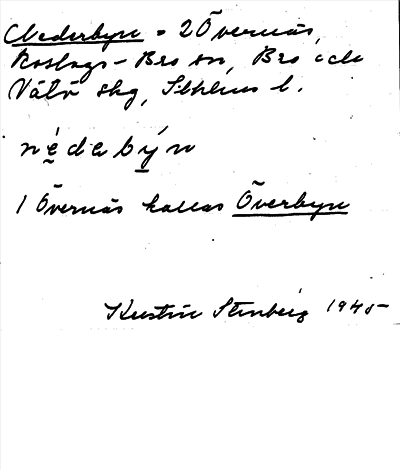 Nederbyn = 2 Övernäs,
Roslags-Bro sn, Bro och
Vätö skg, Sthlms l.
nédabýn
1 Övernäs kallas Överbyn
Kerstin Stenberg 1945